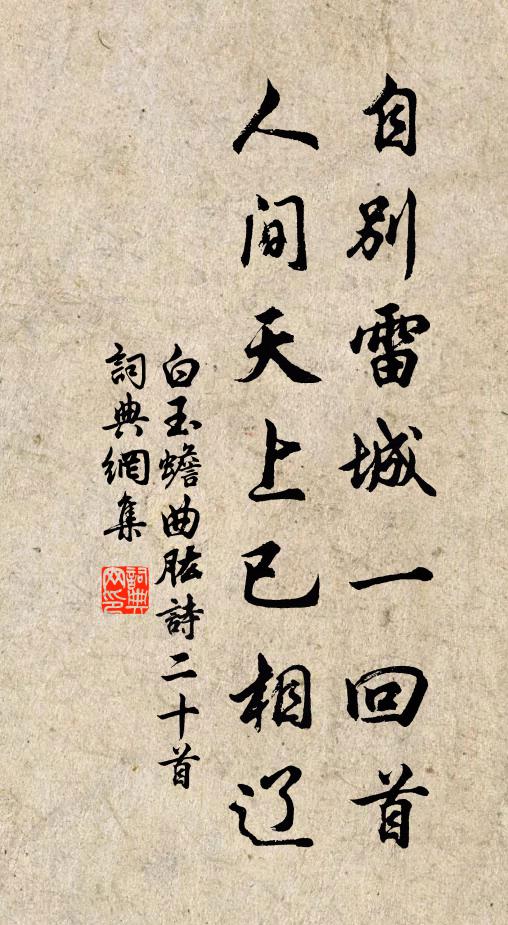 自别雷城一回首
人间天上已相辽
白玉蟾曲肱詩二十首
詞典網集
詞典網印